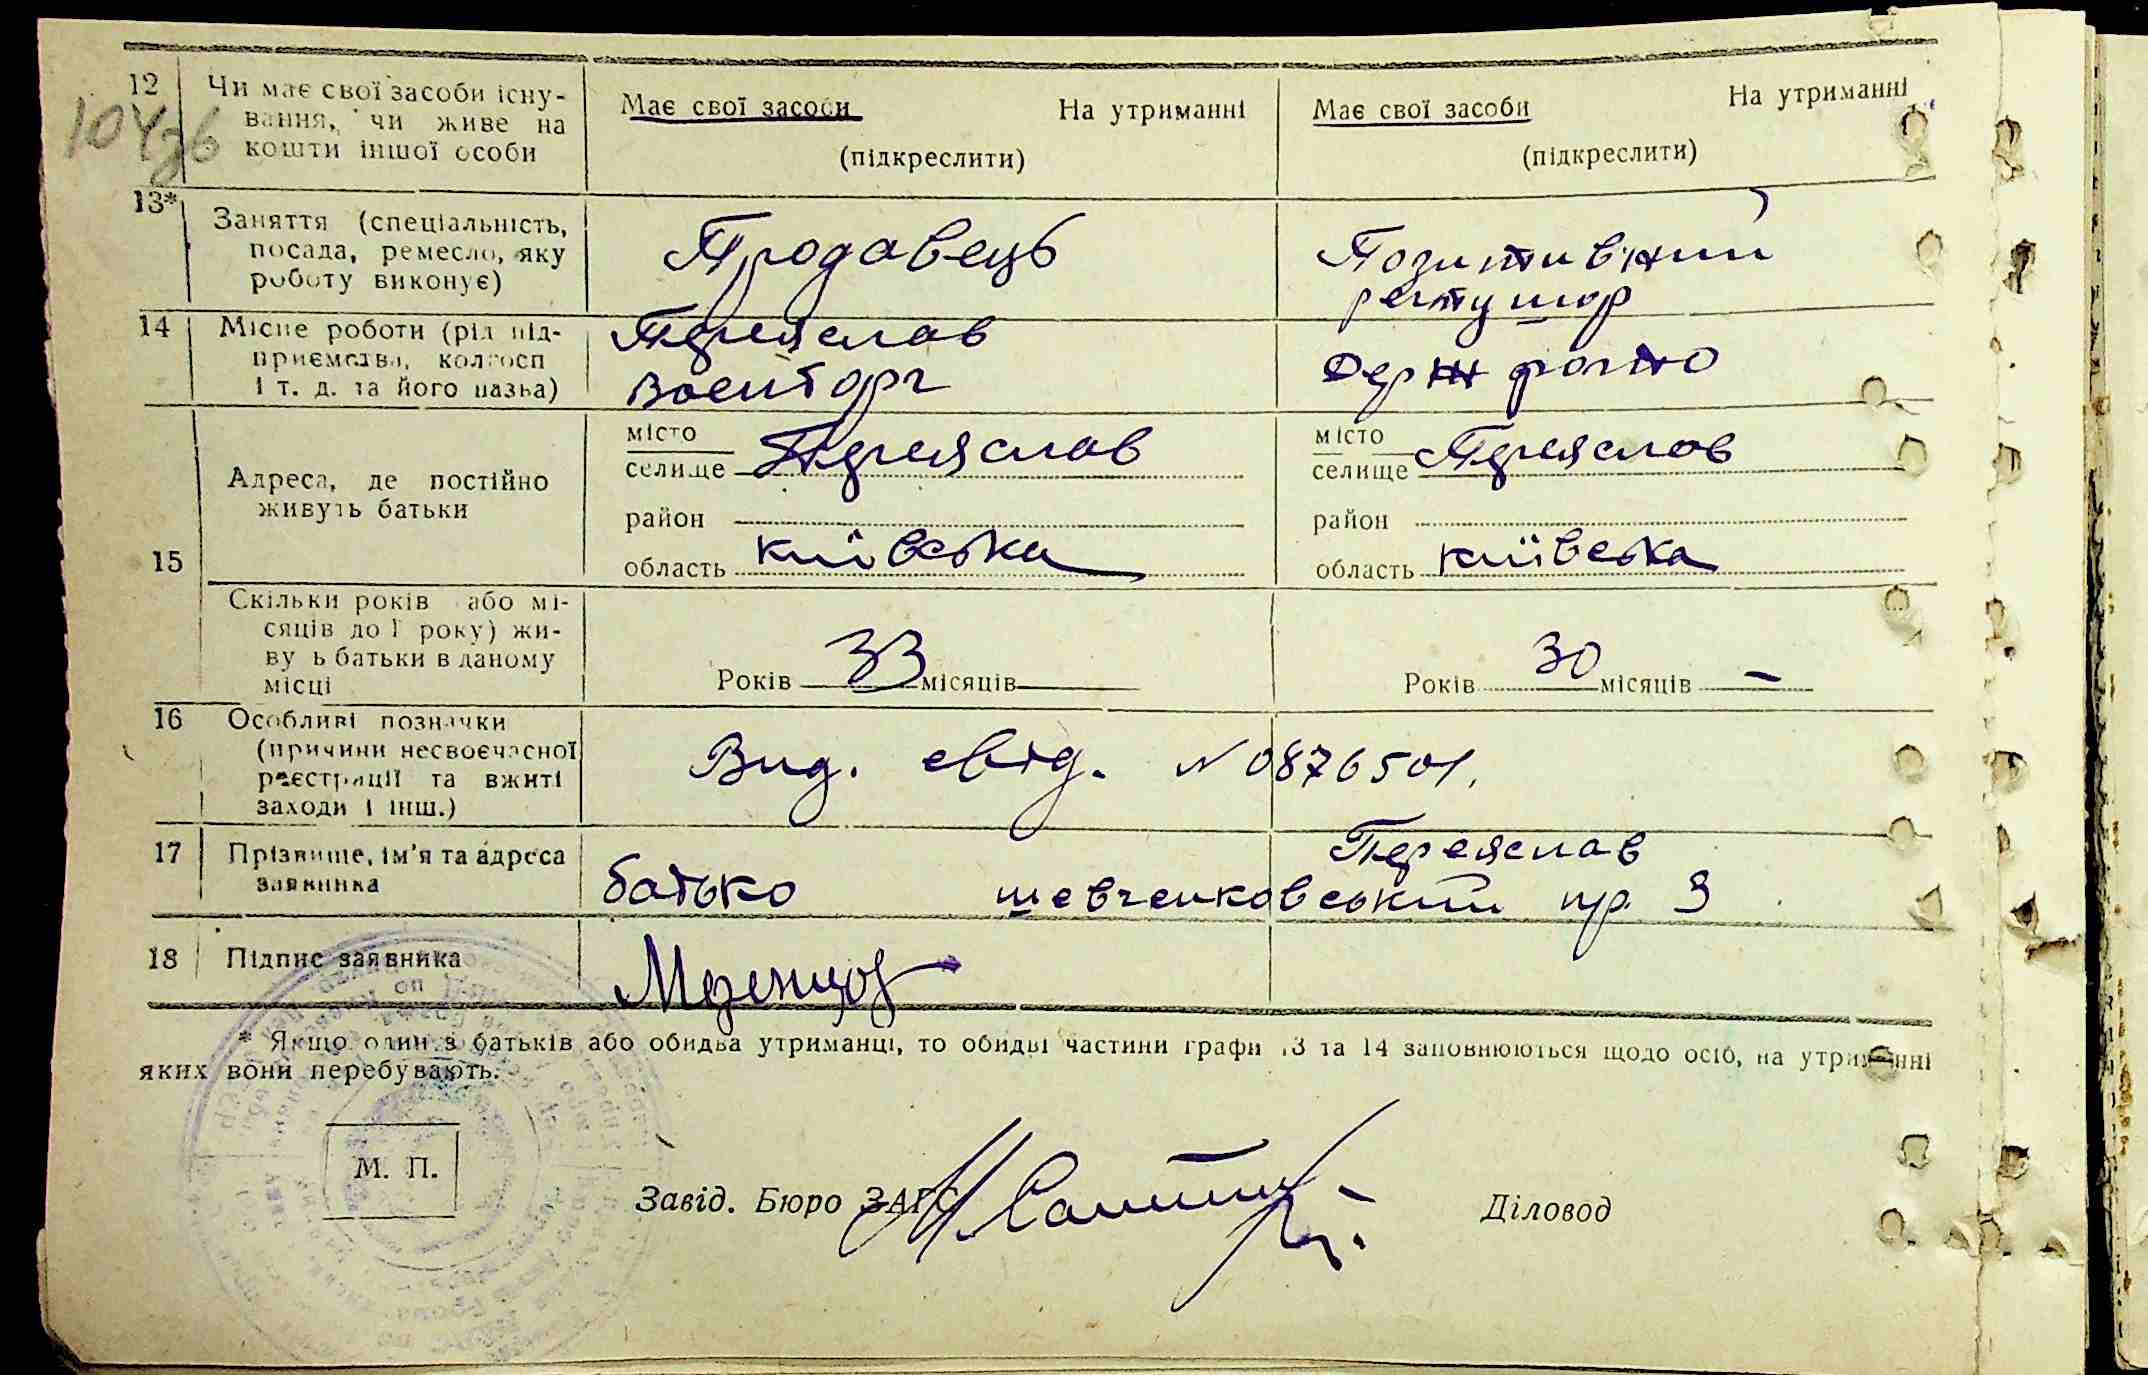 12 Чи має свої засоби існу-
вання, чи живе на
кошти іншої особи
Має свої засоби На утриманні
(підкреслити)
Має свої засоби На утриманні
(підкреслити)
13* Заняття (спеціальність,
посада, ремесло, яку
роботу виконує)
Продавець
Позитивний
ретушор
14 Місце роботи (рід під-
приємства, колгосп
і т. д. та його назва)
Переяслав
воєнторг
Держ фото
15
Адреса, де постійно
живуть батьки
місто
селище Переяслав
район
область київська
місто
селище Переяслав
район
область київська
Скільки років або мі-
сяців до 1 року) жи-
ву ь батьки в даному
місці
Років 33 місяців
Років 30 місяців –
16 Особливі позначки
(причини несвоєчасної
реєстрації та вжиті
заходи і інш.)
Вид. свід. № 0876501.
17 Прізвище, ім'я та адреса
заявника
Переяслав
батько шевченковський пр. 3
18 Підпис заявника
* Якщо один з батьків або обидва утриманці, то обидві частини графи 13 та 14 заповнюються щодо осіб, на утриманні
яких вони перебувають.
М. П.
Завід. Бюро ЗАГС Діловод